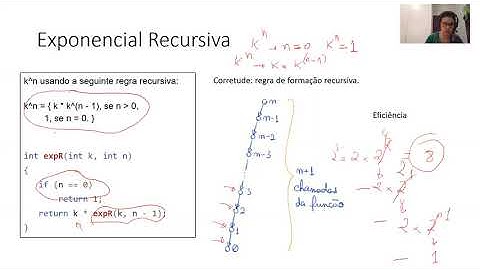 Exponencial Recursiva
k^n → n=0 k^n = 1
k^n → k × k^(n-1)
k^n usando a seguinte regra recursiva:
k^n = { k * k^(n - 1), se n > 0,
1, se n = 0. }
int expR(int k, int n)
{
if (n == 0)
return 1;
return k * expR(k, n - 1);
}
Corretude: regra de formação recursiva.
n
n-1
n-2
n-3
3
2
1
0
n+1
chamadas
da função
Eficiência
8
1